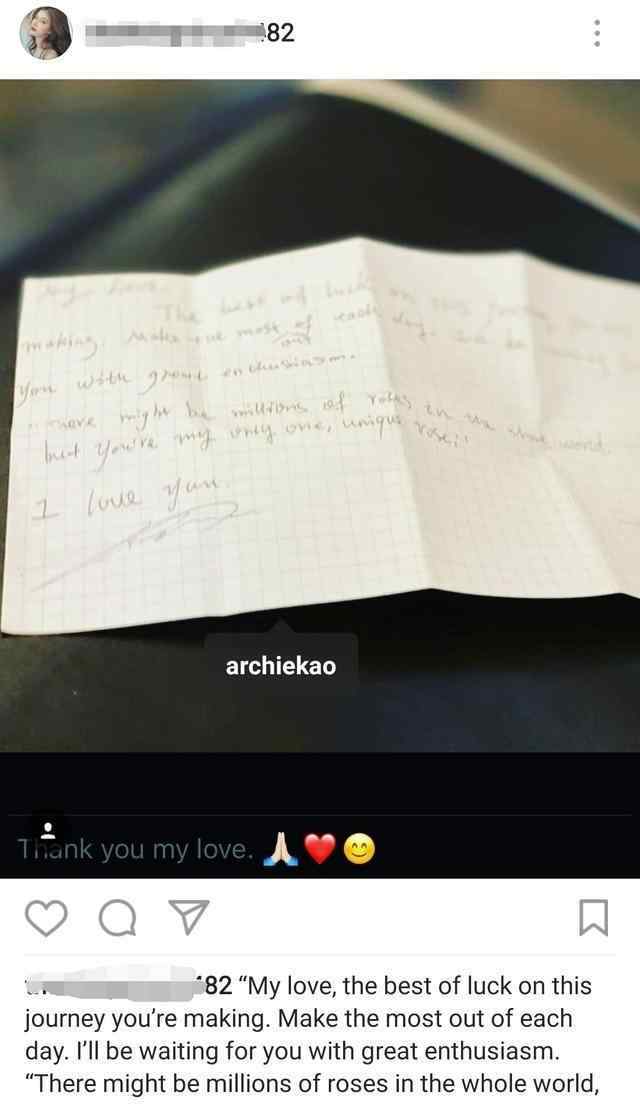 82
My love.
The best of luck on this
making. Make the most of each day.
out
you with great enthusiasm.
"There might be millions of roses in the whole world,
but you're my only one, unique rose."
I love you.
archiekao
Thank you my love. 🙏🏻❤️😊
82 “My love, the best of luck on this
journey you’re making. Make the most out of each
day. I’ll be waiting for you with great enthusiasm.
“There might be millions of roses in the whole world,